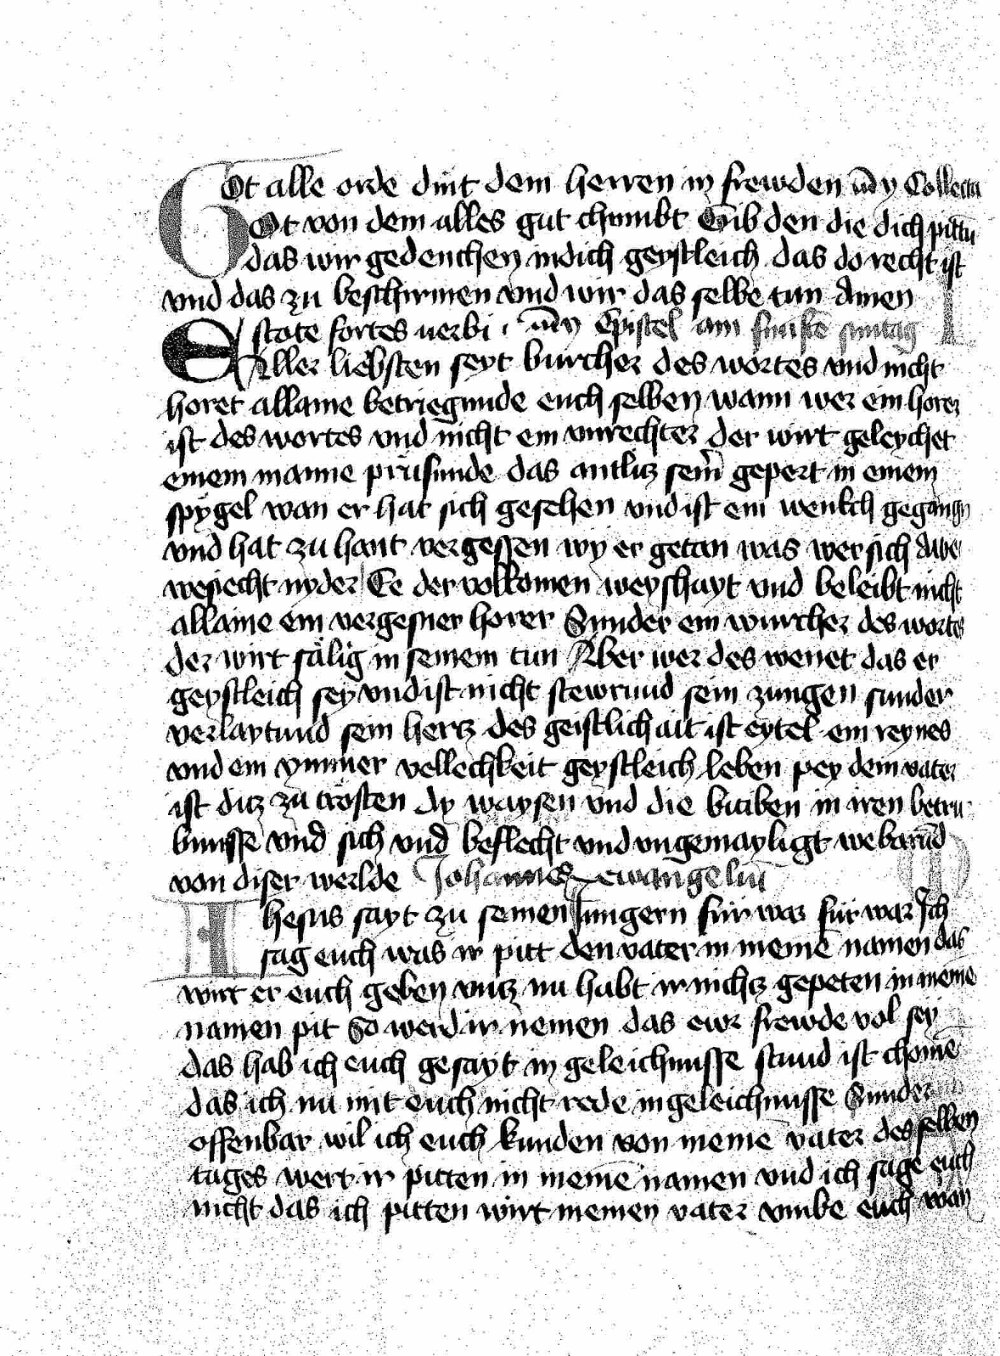 Got alle erde dint dem herren in frewden Collecta
Got von dem alles gut chumbt Gib den die dich pittn
das wir gedenchen in dich geystleich das do recht ist
vnd das zu beschirmen vnd wir das selbe tun Amen
Estote fortes uerbi Dy Epistel am funfte suntag
Aller liebsten seyt burcher des wortes vnd nicht
horet allaine betriegunde euch selben wann wer ein horer
ist des wortes vnd nicht ein wurchter der wirt geleychet
einem manne prüfunde das antlitz seins gepert in einem
spygel wan er hat sich gesehen vnd ist ein wenkch gegangen
vnd hat zu hant vergessen wy er getan was wer sich aber
wesiecht in der Ee der volkomen weyshayt vnd beleibt nicht
allaine ein vergesner horer Sunder ein wurcher des wortes
der wirt sälig in seinem tun Aber wer des wenet das er
geystleich sey vnd ist nicht stewrund sein zungen sunder
verlaytund sein hertz des geistlichait ist eytel ein reynes
vnd ein vnmer vellechkeit geystleich leben pey dem vater
ist ditz zu trösten dy waysen vnd die bitiben in iren betru
bnusse vnd sich vnd beflecht vnd vngemayligt webarnd
von diser werlde Johannes ewangeliu
Ihesus sayt zu seinen Jungern fur war fur war Ich
sag euch was ir pitt den vater in meinē namen das
wirt er euch geben vntz nu habt ir nichtz gepeten in meinē
namen pit So werd ir nemen das ewr frewde vol sey
das hab ich euch gesayt in geleichnusse stund ist chomē
das ich nu mit euch nicht rede in geleichnusse Sunder
offenbar wil ich euch kunden von meinē vater des selben
tages wert ir pitten in meinē namen vnd ich sage euch
nicht das ich pitten wirt meinen vater vmbe euch wan